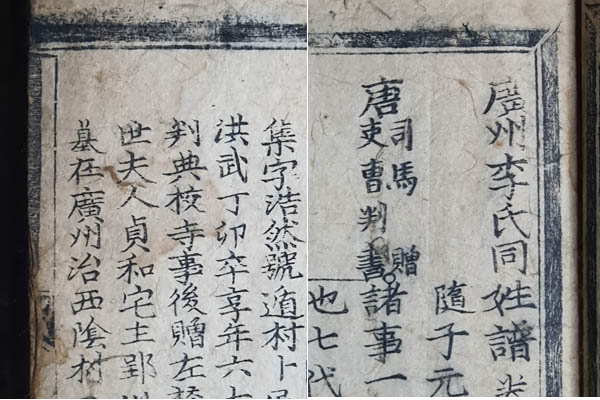 廣州李氏同姓譜
隨子元
司馬 贈
唐吏曹判書諸事一
也七代
集字浩然號遁村卜
洪武丁卯卒享年六
判典校寺事後贈左
世夫人貞和宅主
墓在廣州治西陰村